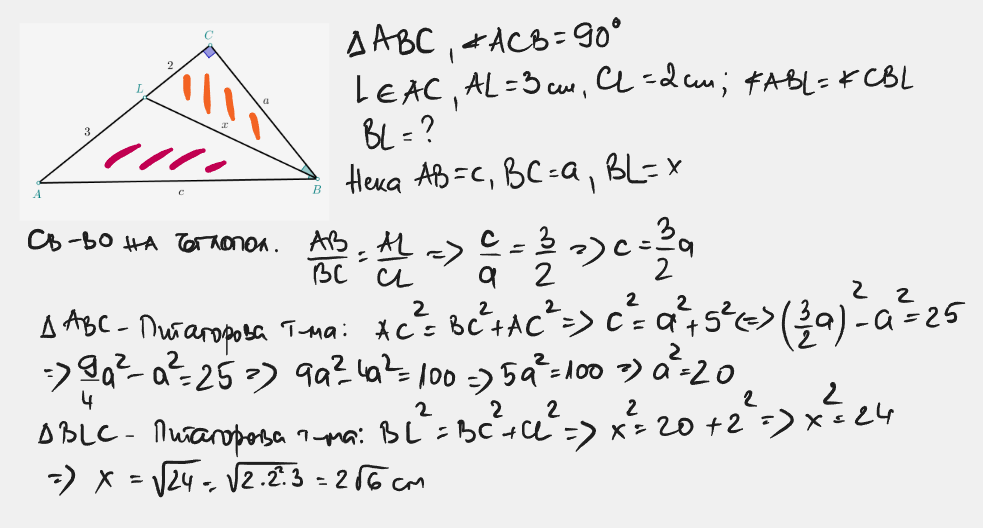 C
2
L
a
3
x
A
B
c
Δ ABC, ∢ACB = 90°
L ∈ AC, AL = 3 cm, CL = 2 cm; ∢ABL = ∢CBL
BL = ?
Нека AB = c, BC = a, BL = x
СВ-ВО НА ЪГЛОПОЛ. AB/BC = AL/CL => c/a = 3/2 => c = 3/2 a
Δ ABC - Питагорова т-ма: AC² = BC² + AC² => c² = a² + 5² <=> (3/2 a)² - a² = 25
=> 9/4 a² - a² = 25 => 9a² - 4a² = 100 => 5a² = 100 => a² = 20
Δ BLC - Питагорова т-ма: BL² = BC² + CL² => x² = 20 + 2² => x² = 24
=> x = √24 = √2.2².3 = 2√6 cm